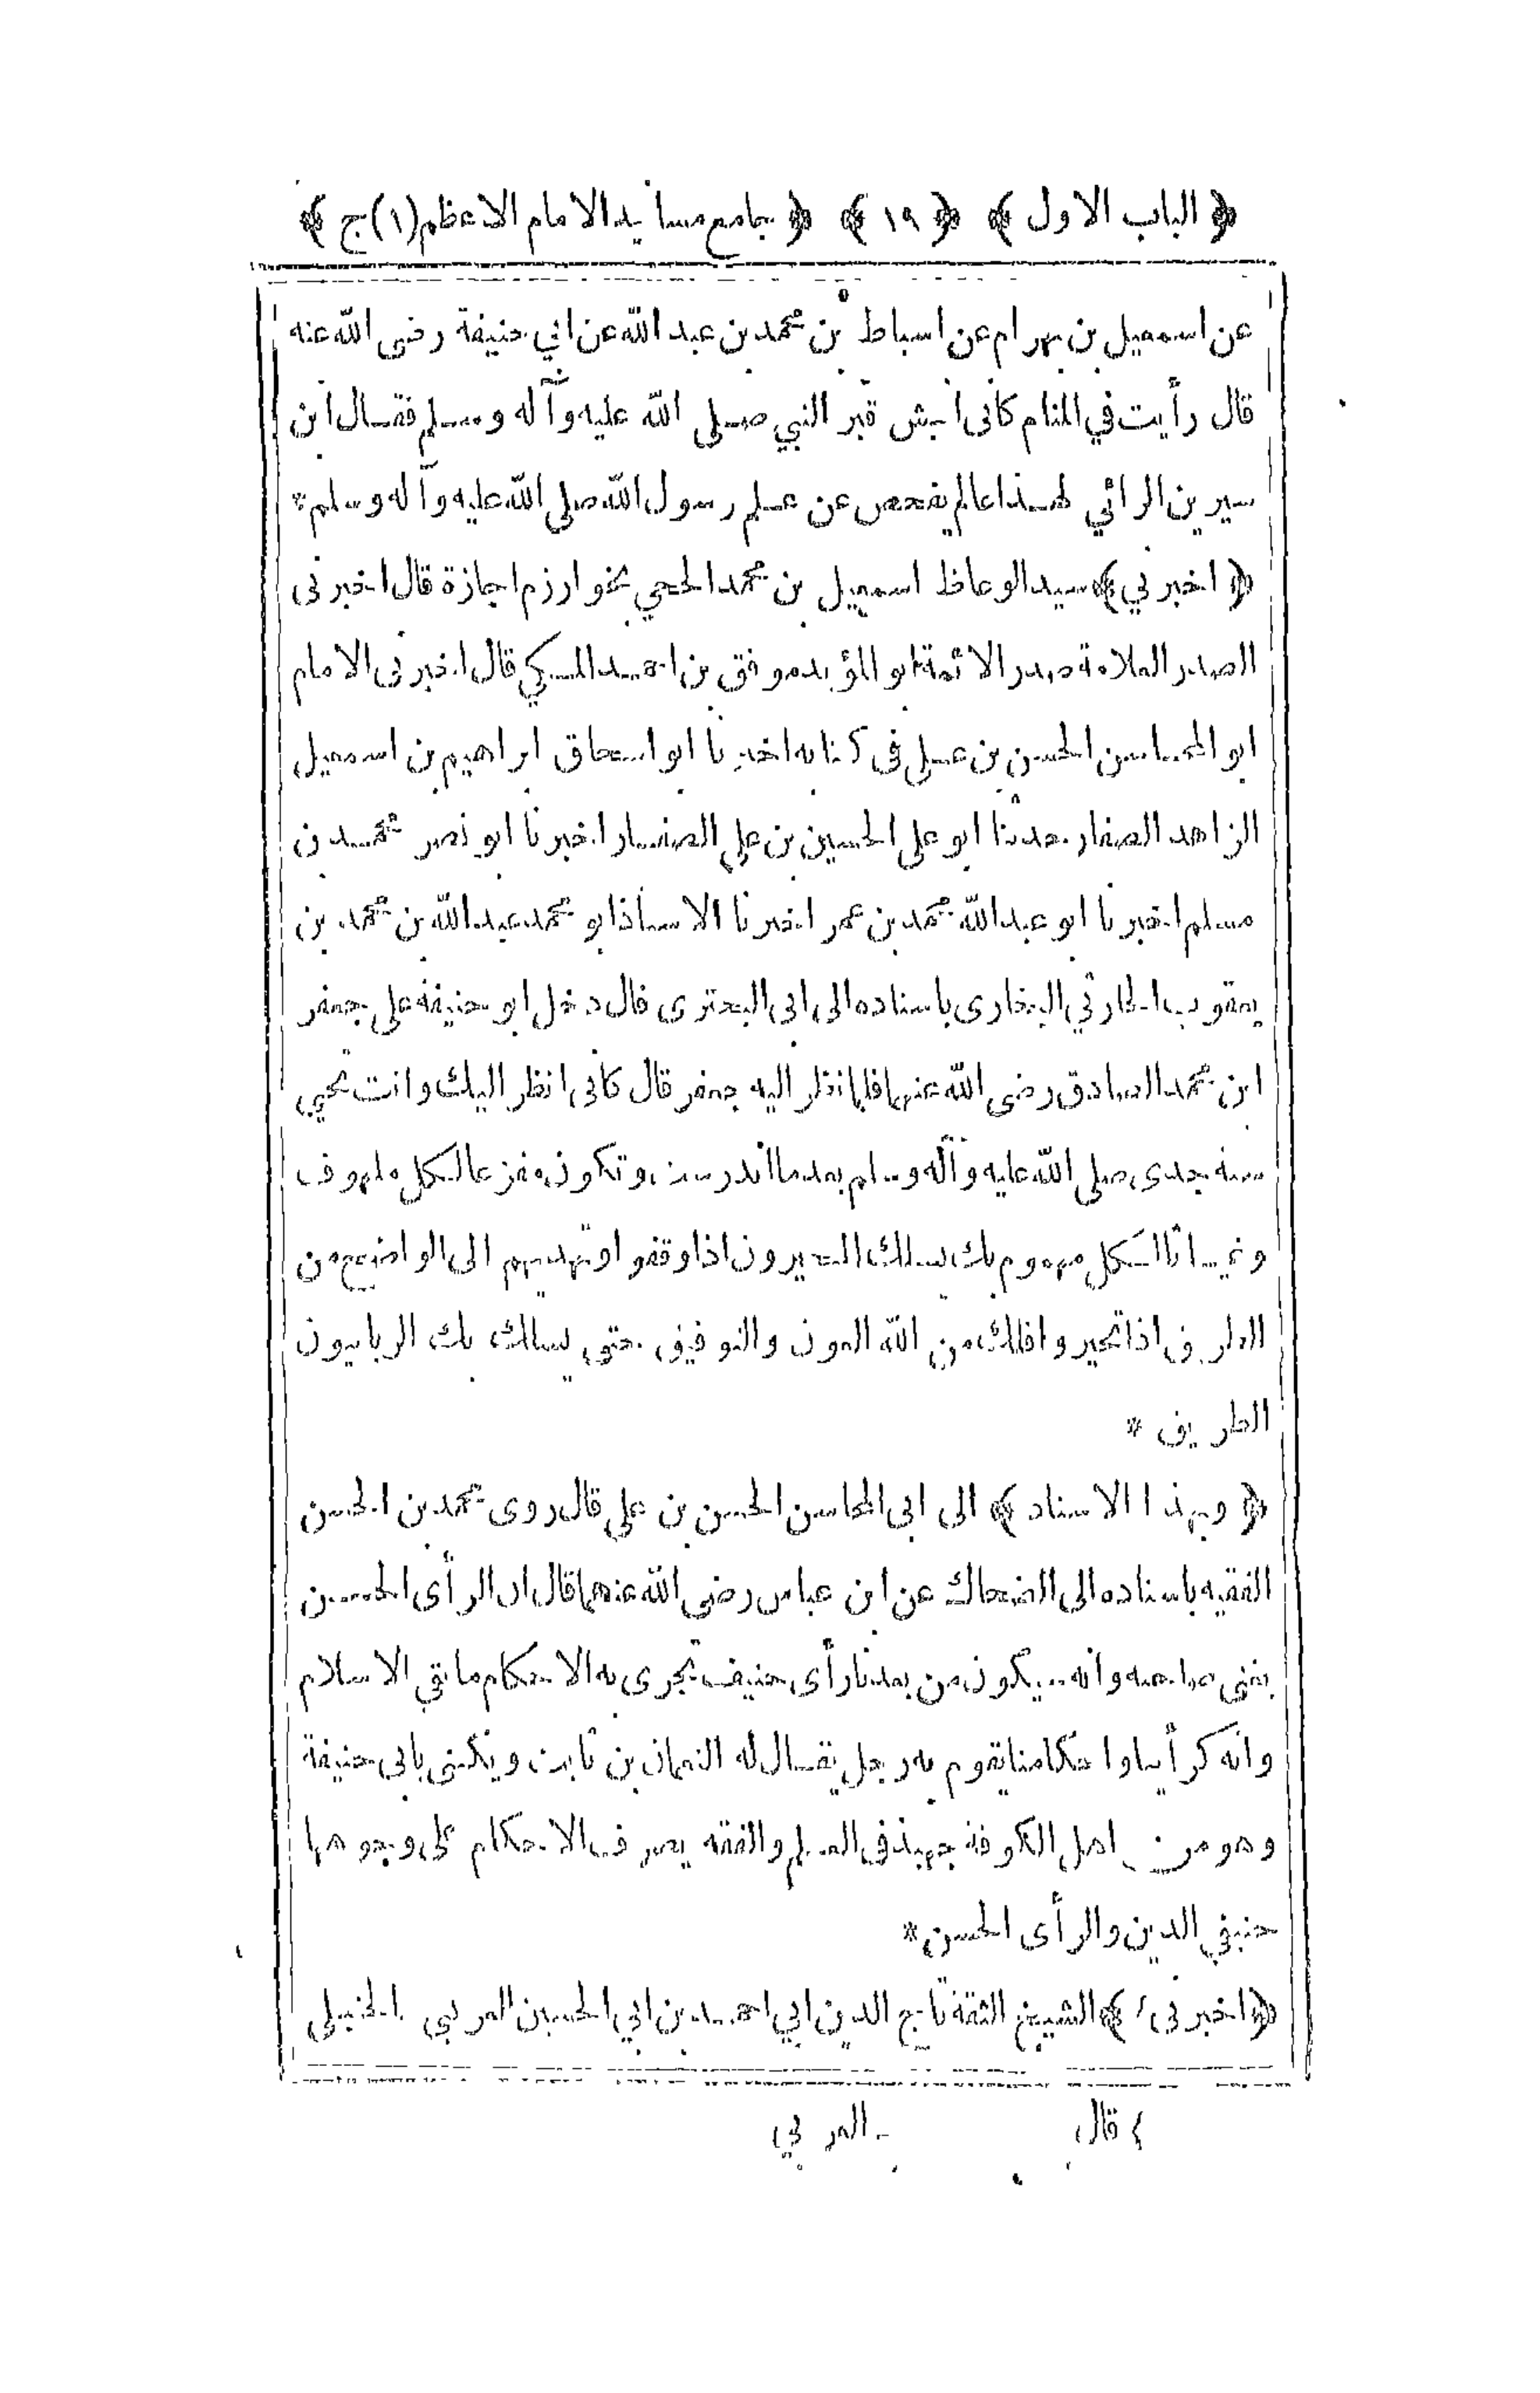 ﴿ الباب الاول ﴾ ﴿ ١٩ ﴾ ﴿ جامع مسانيد الامام الاعظم (١) ج ﴾
عن اسمعيل بن بهرام عن اسباط بن محمد بن عبد الله عن ابي حنيفة رضى الله عنه
قال رأيت في المنام كانى انبش قبر النبي صلى الله عليه وآله وسلم فقال ابن
سيرين الرائي لهذا عالم يفحص عن علم رسول الله صلى الله عليه وآله وسلم *
﴿ اخبرني ﴾ سيد الوعاظ اسمعيل بن محمد الحجي بخوارزم اجازة قال اخبرنى
الصدر العلامة صدر الائمة ابو المؤيد موفق بن احمد المكي قال اخبرنى الامام
ابو المحاسن الحسن بن على فى كتابه اخبرنا ابو اسحاق ابراهيم بن اسمعيل
الزاهد الصفار حدثنا ابو على الحسين بن علي الصفار اخبرنا ابو نصر محمد بن
مسلم اخبرنا ابو عبد الله محمد بن عمر اخبرنا الاستاذ ابو محمد عبد الله بن محمد بن
يعقوب الحارثي البخارى باسناده الى ابى البحترى قال دخل ابو حنيفة على جعفر
ابن محمد الصادق رضى الله عنهما فلما نظر اليه جعفر قال كانى انظر اليك وانت تحيي
سنة جدى صلى الله عليه وآله وسلم بعد ما اندرست وتكون مفزعا لكل ملهوف
وغياثا لكل مهموم بك يسلك المتحيرون اذا وقفوا وتهديهم الى الواضح من
الطريق اذا تحيروا فلك من الله العون والتوفيق حتى يسلك بك الربانيون
الطريق *
﴿ وبهذا الاسناد ﴾ الى ابى المحاسن الحسن بن على قال روى محمد بن الحسن
الفقيه باسناده الى الضحاك عن ابن عباس رضى الله عنهما قال ان الرأى الحسن
صاحبه وانه سيكون من بعدنا رأى حنيف تجرى به الاحكام ما بقي الاسلام
وانه كرأينا واحكامنا يقوم به رجل يقال له النعمان بن ثابت ويكنى بابى حنيفة
وهو من اهل الكوفة جهبذ فى العلم والفقه يصرف الاحكام على وجوهها
حنيفي الدين والرأى الحسن *
﴿ اخبرنى ﴾ الشيخ الثقة تاج الدين ابي احمد بن ابي الحسين العربي الحنبلى
قال العربي